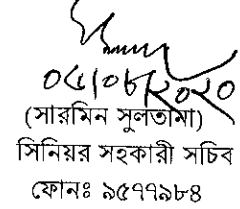 ০৫/০৮/২০২০
(সারমিন সুলতানা)
সিনিয়র সহকারী সচিব
ফোনঃ ৯৫৭৭৯৮৪